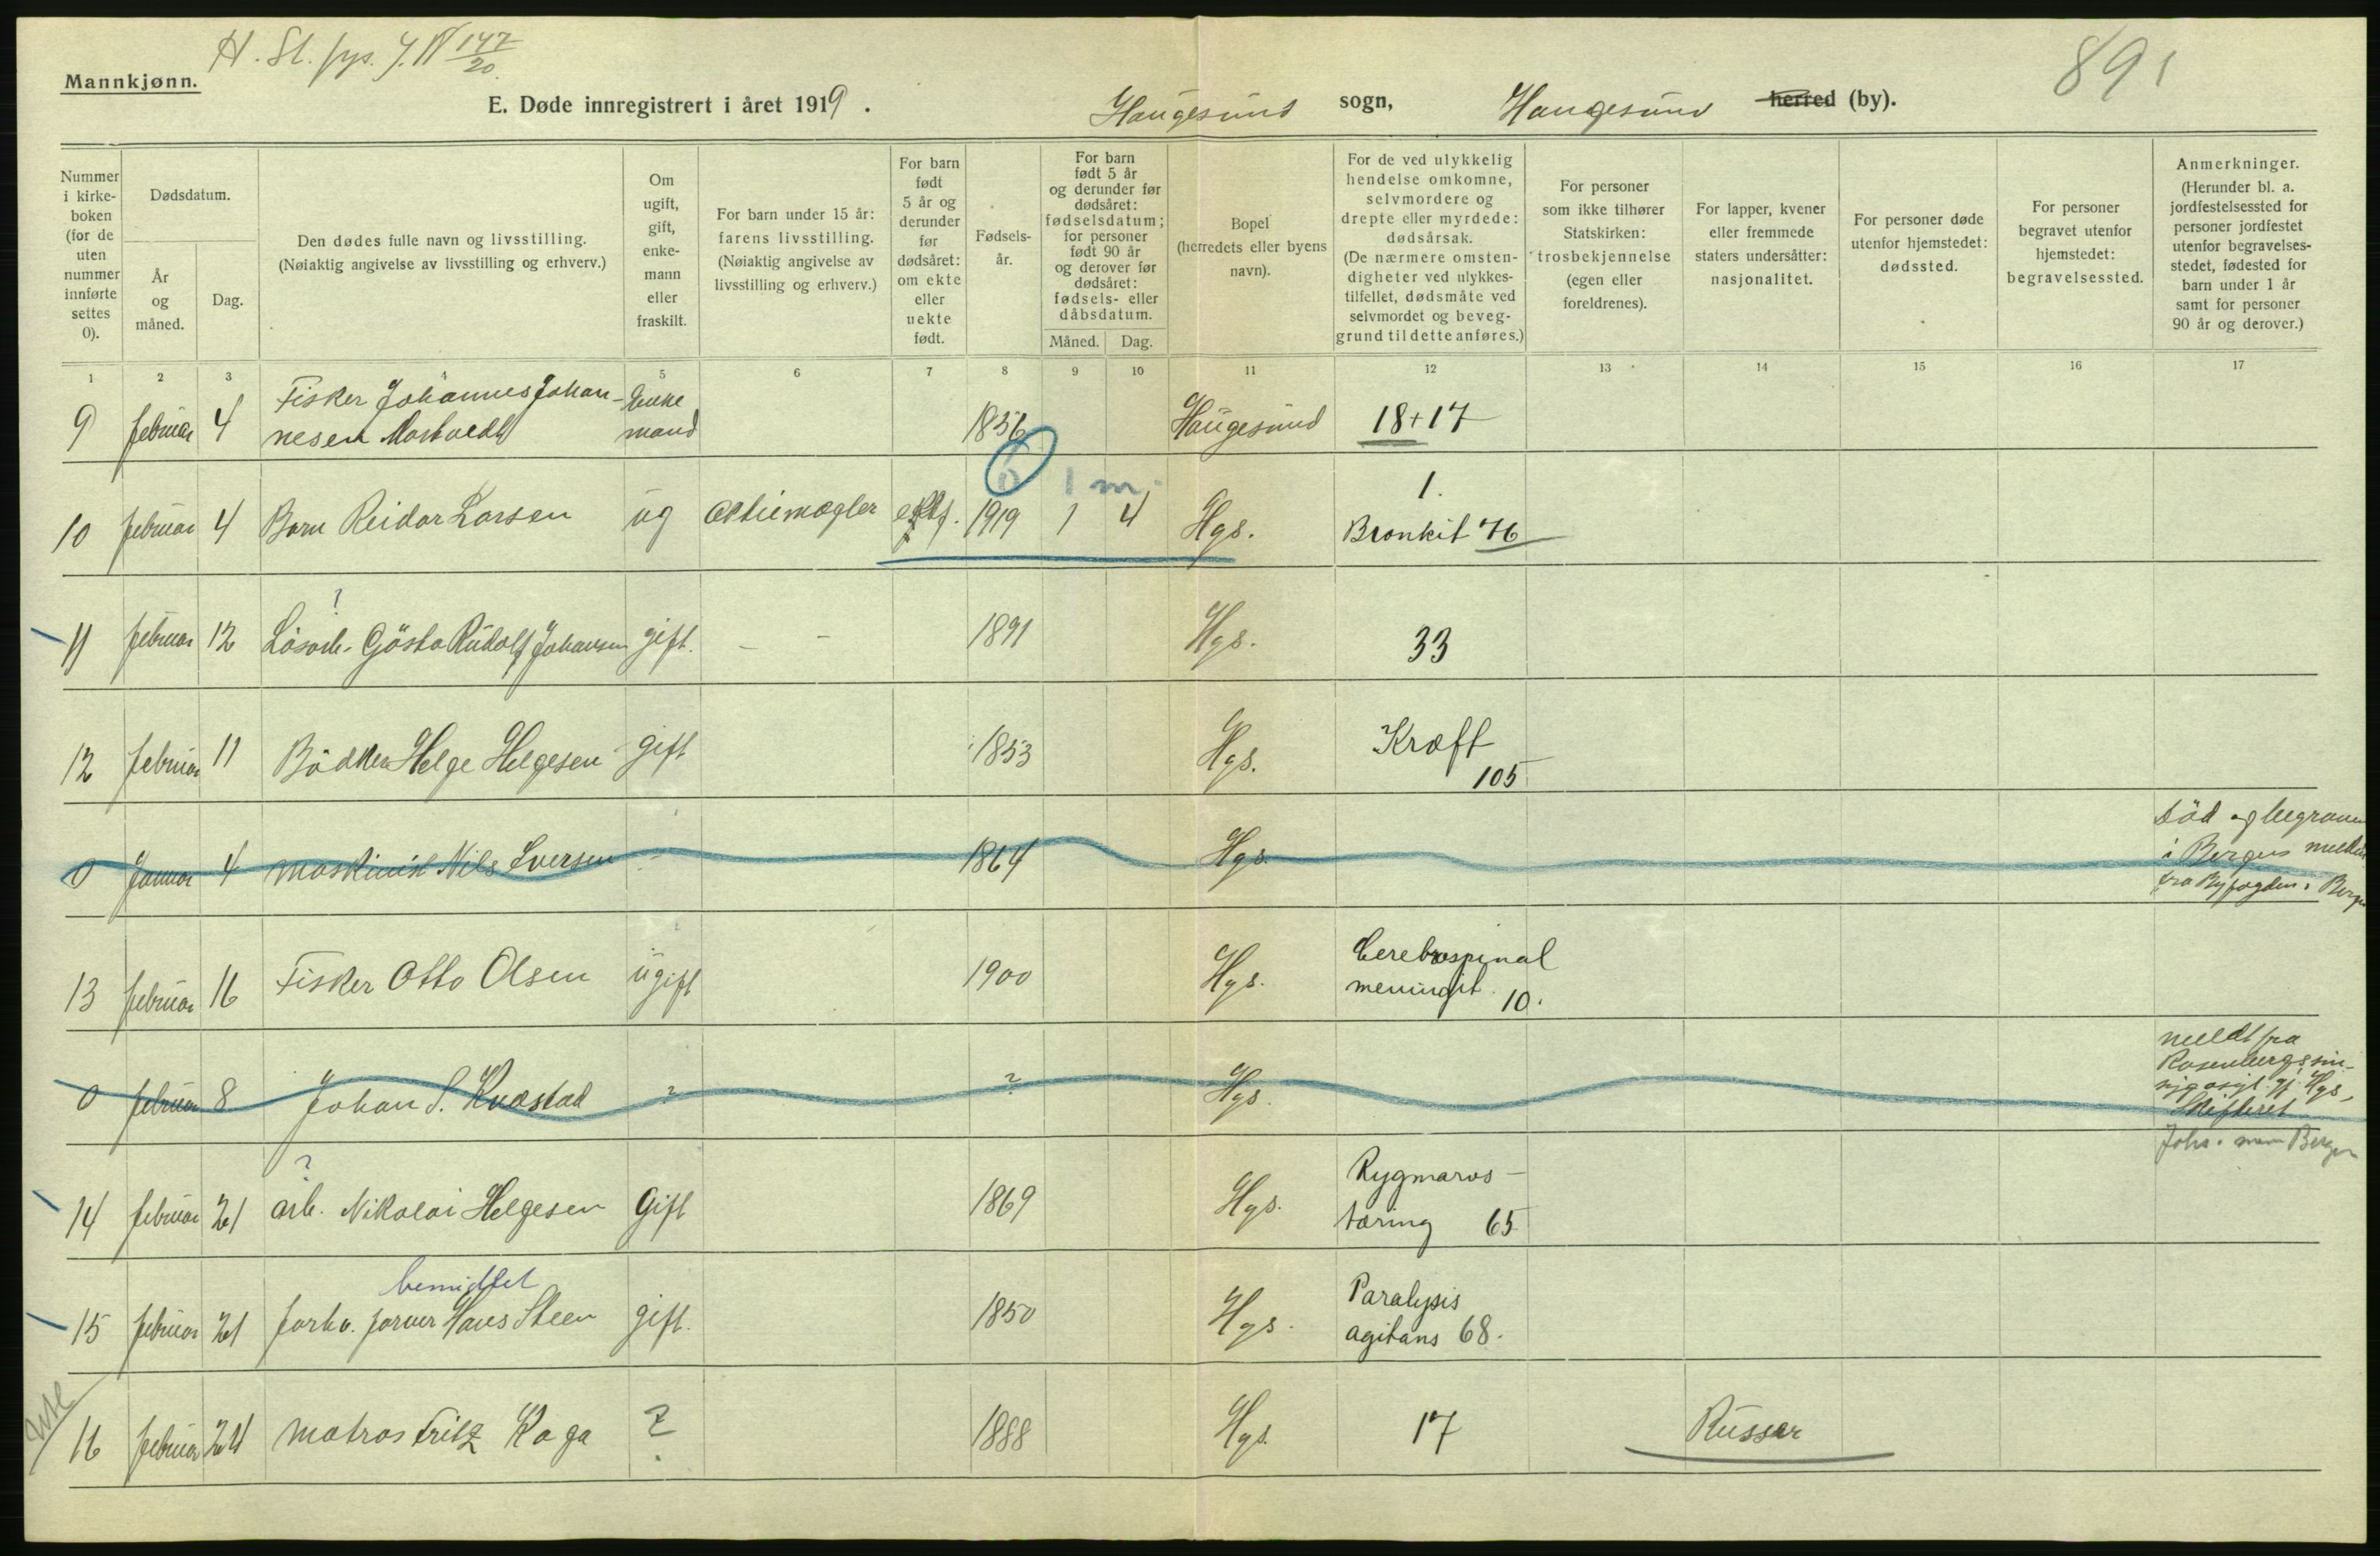 H. St. fys. J. N 147/20
891
Mannkjønn.
E. Døde innregistrert i året 1919.
Haugesund sogn, Haugesund herred (by).
Nummer i kirke- boken (for de uten nummer innførte settes 0).
Dødsdatum.
År og måned.
Dag.
Den dødes fulle navn og livsstilling.
(Nøiaktig angivelse av livsstilling og erhverv.)
Om ugift, gift, enke- mann eller fraskilt.
For barn under 15 år: farens livsstilling.
(Nøiaktig angivelse av livsstilling og erhverv.)
For barn født 5 år og derunder før dødsåret: om ekte eller uekte født.
Fødsels- år.
For barn født 5 år og derunder før dødsåret: fødselsdatum; for personer født 90 år og derover før dødsåret: fødsels- eller dåbsdatum.
Måned. Dag.
Bopel (herredets eller byens navn).
For de ved ulykkelig hendelse omkomne, selvmordere og drepte eller myrdede: dødsårsak.
(De nærmere omsten- digheter ved ulykkes- tilfellet, dødsmåte ved selvmordet og beveg- grund til dette anføres.)
For personer som ikke tilhører Statskirken: trosbekjennelse (egen eller foreldrenes).
For lapper, kvener eller fremmede staters undersåtter: nasjonalitet.
For personer døde utenfor hjemstedet: dødssted.
For personer begravet utenfor hjemstedet: begravelsessted.
Anmerkninger.
(Herunder bl. a. jordfestelsessted for personer jordfestet utenfor begravelses- stedet, fødested for barn under 1 år samt for personer 90 år og derover.)
1 2 3 4 5 6 7 8 9 10 11 12 13 14 15 16 17
9 februar 4 Fisker Johannes Johan- Enke
nesen mand 1856 Haugesund 18+17
0 1 m.
10 februar 4 Barn Reidar Larsen ug ektef. 1919 1 4 Hgs. 1.
Bronkit 46
?
11 februar 12 Gösta Rudolf Johansen gift. - - 1891 Hgs. 33
12 februar 11 Bödker Helge Helgesen gift 1853 Hgs. Kræft
105
0 Januar 4 maskinist Nils Iversen - 1864 Hgs. Död og begraven
i Bergen
fra Byfogden i Bergen
13 februar 16 Fisker Otto Olsen ugift 1900 Hgs. Cerebrospinal
meningit. 10.
0 februar 8 Johan S. ? ? Hgs. meldt fra
Rosenbergs sin-
Hgs,
Skifteret
Bergen
?
14 februar 21 arb. Nikolai Helgesen Gift 1869 Hgs. Rygmarvs-
tæring 65
bemidlet
15 februar 21 forhv. Hans Steen gift. 1850 Hgs. Paralysis
agitans 68.
16 februar 24 matros Fritz Koga ? 1888 Hgs. 17 Russer